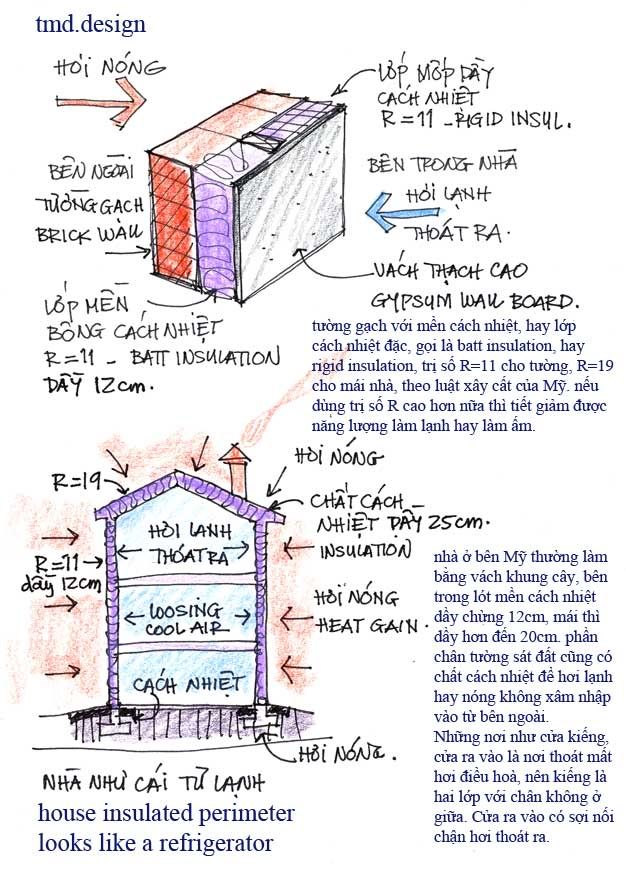 tmd.design
HƠI NÓNG
LỚP MỐP DẦY
CÁCH NHIỆT
R=11 - RIGID INSUL.
BÊN NGOÀI
TƯỜNG GẠCH
BRICK WALL
BÊN TRONG NHÀ
HƠI LẠNH
THOÁT RA.
VÁCH THẠCH CAO
GYPSUM WALL BOARD.
LỚP MỀN
BÔNG CÁCH NHIỆT
R=11 - BATT INSULATION
DẦY 12cm.
tường gạch với mền cách nhiệt, hay lớp
cách nhiệt đặc, gọi là batt insulation, hay
rigid insulation, trị số R=11 cho tường, R=19
cho mái nhà, theo luật xây cất của Mỹ. nếu
dùng trị số R cao hơn nữa thì tiết giảm được
năng lượng làm lạnh hay làm ấm.
R=19
HƠI NÓNG
CHẤT CÁCH
NHIỆT DẦY 25cm.
INSULATION
HƠI LẠNH
THOÁT RA
R=11
dầy 12cm
LOOSING
COOL AIR
HƠI NÓNG
HEAT GAIN.
CÁCH NHIỆT
HƠI NÓNG.
nhà ở bên Mỹ thường làm
bằng vách khung cây, bên
trong lót mền cách nhiệt
dầy chừng 12cm, mái thì
dầy hơn đến 20cm. phần
chân tường sát đất cũng có
chất cách nhiệt để hơi lạnh
hay nóng không xâm nhập
vào từ bên ngoài.
Những nơi như cửa kiếng,
cửa ra vào là nơi thoát mất
hơi điều hoà, nên kiếng là
hai lớp với chân không ở
giữa. Cửa ra vào có sợi nối
chận hơi thoát ra.
NHÀ NHƯ CÁI TỦ LẠNH
house insulated perimeter
looks like a refrigerator